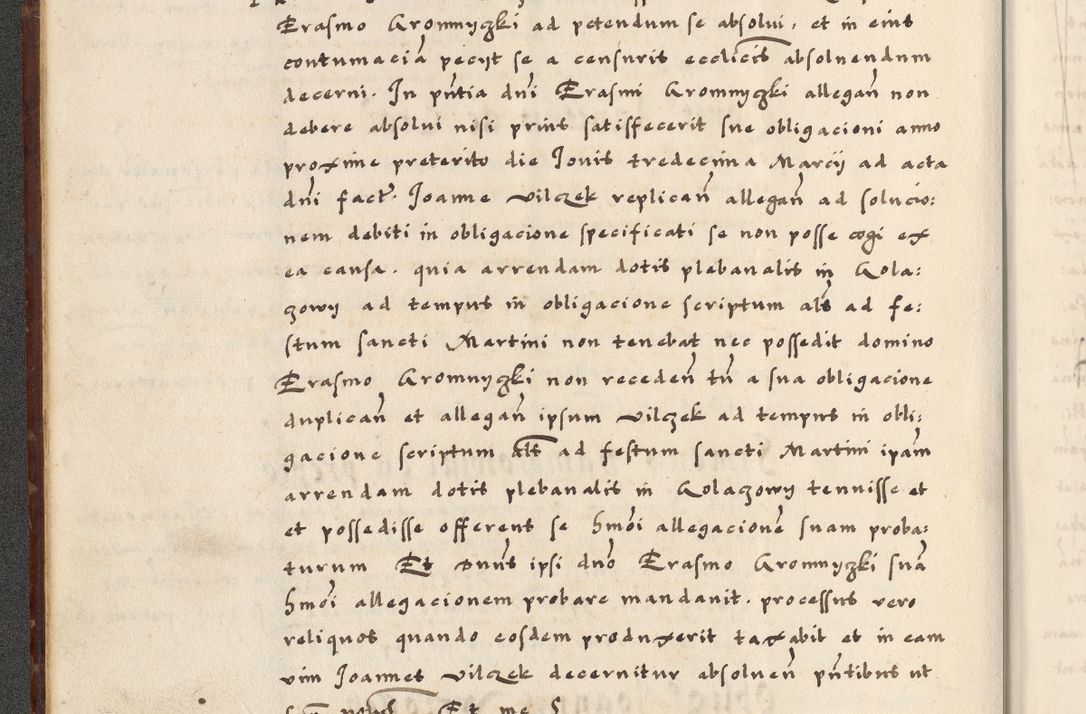 Erasmo Gromnyczki ad petendum se absolui, et in eius
contumaciā peciit se a censuris ecclīcis absoluendum
decerni. In pn̄tia dn̄i Erasmi Gromnyczki allegan̄ non
debere absolui nisi prius satisfecerit sue obligacioni anno
proxime preterito die Iouis tredecima Marcij ad acta
dn̄i fact. Ioanne Vilczek replican̄ allegan̄ ad solucio:
nem debiti in obligacione specificati se non posse cogi ex
ea causa. quia arrendam dotis plebanalis in Gola:
czowy ad tempus in obligacione scriptum al̄s ad fe:
stum sancti Martini non tenebat nec possedit domino
Erasmo Gromnyczki non receden̄ tn̄ a sua obligacione
duplican̄ et allegan̄ ipsum Vilczek ad tempus in obli:
gacione scriptum al̄s ad festum sancti Martini ipām
arrendam dotis plebanalis in Golaczowy tenuisse et
et possedisse offerens se hmōi allegacionē suam proba:
turum Et Dn̄us ipsi dn̄o Erasmo Gromnyczki suā
hmōi allegacionem probare mandauit. processus vero
reliquos quando eosdem produxerit taxabit et in eam
vim Ioannes Vilczek decernitur absoluen̄ pn̄tibus ut
Et me